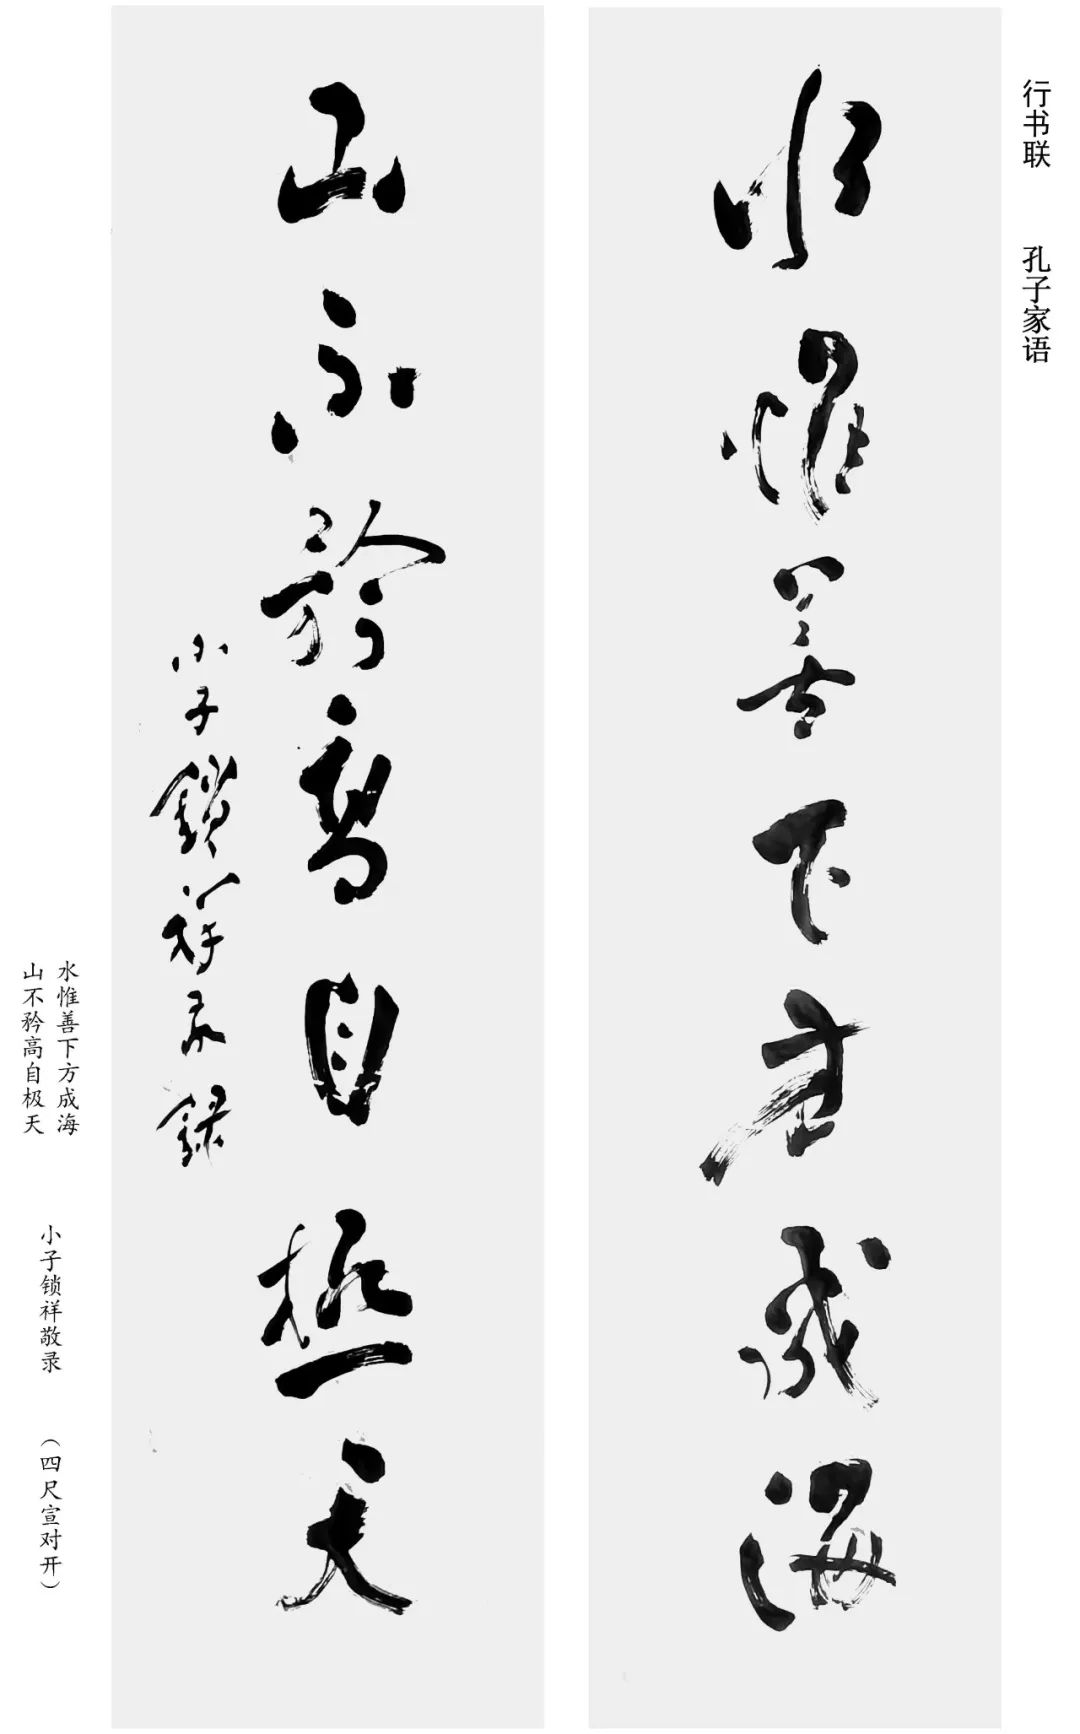 行书联 孔子家语
水惟善下方成海
山不矜高自極天
小子鎖祥敬録
水惟善下方成海
山不矜高自极天
小子锁祥敬录
（四尺宣对开）